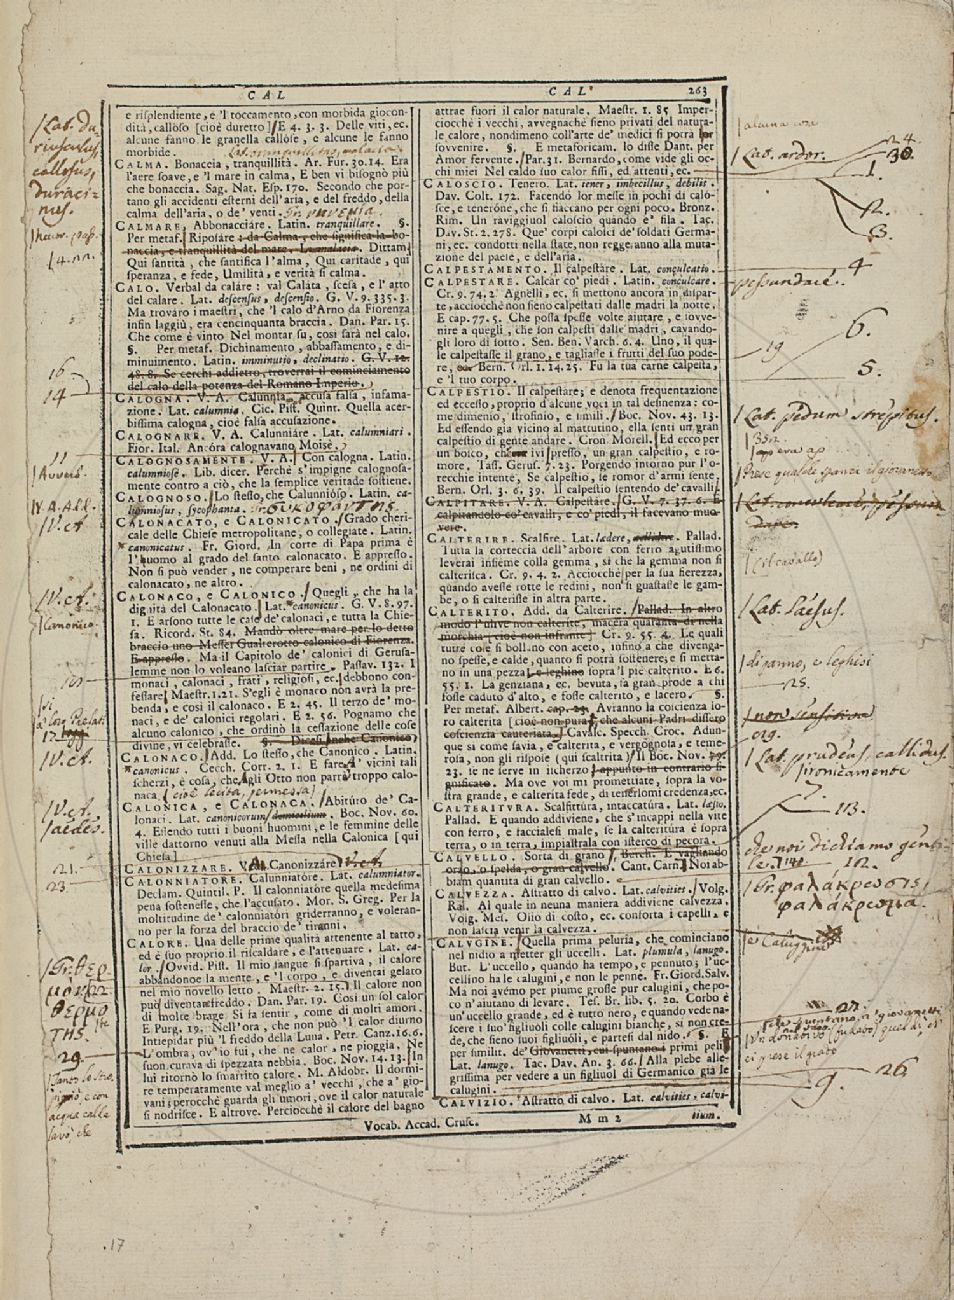 CAL
CAL
263
e risplendiente, e 'l toccamento, con morbida giocon-
dità, calloso [cioè duretto] E 4. 3. 3. Delle viti, ec.
alcune fanno le granella callose, e alcune le fanno
morbide.
CALMA. Bonaccia, tranquillità. Ar. Fur. 30. 14. Era
l'aere soave, e 'l mare in calma, E ben vi bisognò più
che bonaccia. Sag. Nat. Esp. 170. Secondo che por-
tano gli accidenti esterni dell'aria, e del freddo, della
calma dell'aria, o de' venti.
CALMARE. Abbonacciare. Latin. tranquillare. §.
Per metaf. Riposare : da Calma, che significa la bo-
naccia, e tranquillità del mare. Dittam.
Qui santità, che santifica l'alma, Qui caritade, qui
speranza, e fede, Umiltà, e verità si calma.
CALO. Verbal da calare: val Calata, scesa, e l'atto
del calare. Lat. descensus, descensio. G. V. 9. 335. 3.
Ma trovaro i maestri, che 'l calo d'Arno da Fiorenza
infin laggiù, era cencinquanta braccia. Dan. Par. 15.
Che come è vinto Nel montar su, così sarà nel calo.
§. Per metaf. Dichinamento, abbassamento, e di-
minuimento. Latin. imminutio, declinatio. G. V. 12.
48. 8. Se cerchi addietro, troverrai il cominciamento
del calo della potenza del Romano Imperio.
CALOGNA. V. A. Calunnia, accusa falsa, infama-
zione. Lat. calumnia. Cic. Pist. Quint. Quella acer-
bissima calogna, cioè falsa accusazione.
CALOGNARE. V. A. Calunniare. Lat. calumniari.
Fior. Ital. Ancora calognavano Moisè.
CALOGNOSAMENTE. V. A. Con calogna. Latin.
calumniosè. Lib. dicer. Perchè s'impigne calognosa-
mente contro a ciò, che la semplice veritade sostiene.
CALOGNOSO. Lo stesso, che Calunnioso. Latin. ca-
lumniosus, sycophanta.
CALONACATO, e CALONICATO. Grado cheri-
cale delle Chiese metropolitane, o collegiate. Latin.
canonicatus. Fr. Giord. In corte di Papa prima è
l'huomo al grado del santo calonacato. E appresso.
Non si può vender, ne comperare beni, ne ordini di
calonacato, ne altro.
CALONACO, e CALONICO. Quegli, che ha la
dignità del Calonacato. Lat. canonicus. G. V. 8. 97.
1. E arsono tutte le case de' calonaci, e tutta la Chie-
sa. Ricord. St. 84. Mandò oltre mare per lo detto
braccio uno Messer Gualterotto calonico di Fiorenza.
E appresso. Ma il Capitolo de' calonici di Gerusa-
lemme non lo voleano lasciar partire. Passav. 132. I
monaci, calonaci, frati, religiosi, ec. debbono con-
fessare. Maestr. 1. 21. S'egli è monaco non avrà la pre-
benda, e così il calonaco. E 2. 45. Il terzo de' mo-
naci, e de' calonici regolari. E 2. 56. Pognamo che
alcuno calonico, che ordinò la cessazione delle cose
divine, vi celebrasse. §. Dicesi anche Canonico.
CALONACO. Add. Lo stesso, che Canonico. Latin.
canonicus. Cecch. Corr. 2. 1. E fare a' vicini tali
scherzi, è cosa, che gli Otto non parrà troppo calo-
naca.
CALONICA, e CALONACA. Abituro de' Ca-
lonaci. Lat. canonicorum domicilium. Boc. Nov. 60.
4. Essendo tutti i buoni huomini, e le femmine delle
ville dattorno venuti alla Messa nella Calonica [qui
Chiesa]
CALONIZZARE. V. A. Canonizzare
CALONNIATORE. Calunniatore. Lat. calumniator.
Declam. Quintil. P. Il calonniatore quella medesima
pena sostenesse, che l'accusato. Mor. S. Greg. Per la
moltitudine de' calonniatori grideranno, e voleran-
no per la forza del braccio de' tiranni.
CALORE. Una delle prime qualità attenente al tatto,
ed è suo proprio il riscaldare, e l'attenuare. Lat. ca-
lor. Ovvid. Pist. Il mio sangue si spartiva, il calore
abbandonoe la mente, e 'l corpo, e diventai gelato
nel mio novello letto. Maestr. 2. 15. Il calore non
può diventare freddo. Dan. Par. 19. Così un sol calor
di molte brage Si fa sentir, come di molti amori.
E Purg. 19. Nell'ora, che non può 'l calor diurno
Intiepidar più 'l freddo della Luna. Petr. Canz. 16. 6.
L'ombra, ov'io fui, che ne calor, ne pioggia, Ne
suon curava di spezzata nebbia. Boc. Nov. 14. 13. In
lui ritornò lo smarrito calore. M. Aldobr. Il dormi-
re temperatamente val meglio a' vecchi, che a' gio-
vani; perocchè guarda gli umori, ove il calor naturale
si nodrisce. E altrove. Perciocchè il calore del bagno
attrae fuori il calor naturale. Maestr. 1. 85. Imper-
ciocchè i vecchi, avvegnachè sieno privati del natura-
le calore, nondimeno coll'arte de' medici si potrà lor
sovvenire. §. E metaforicam. lo disse Dant. per
Amor fervente. Par. 31. Bernardo, come vide gli oc-
chi miei Nel caldo suo calor fissi, ed attenti, ec.
CALOSCIO. Tenero. Lat. tener, imbecillus, debilis.
Dav. Colt. 172. Facendo lor messe in pochi dì calo-
sce, e tenerone, che si fiaccano per ogni poco. Bronz.
Rim. Un raviggiuol caloscio quando e' fila. Tac.
Dav. St. 2. 278. Que' corpi calosci de' soldati Germa-
ni, ec. condotti nella state, non reggeranno alla muta-
zione del paese, e dell'aria.
CALPESTAMENTO. Il calpestare. Lat. conculcatio.
CALPESTARE. Calcar co' piedi. Latin. conculcare.
Cr. 9. 74. 2. Agnelli, ec. si mettono ancora in dispar-
te, acciocchè non sieno calpestati dalle madri la notte.
E cap. 77. 5. Che possa spesse volte aiutare, e sovve-
nire a quegli, che son calpesti dalle madri, cavando-
gli loro di sotto. Sen. Ben. Varch. 6. 4. Uno, il qua-
le calpestasse il grano, e tagliasse i frutti del suo pode-
re, ec. Bern. Orl. 1. 14. 25. Fu la tua carne calpesta,
e 'l tuo corpo.
CALPESTIO. Il calpestare; e denota frequentazione
ed eccesso, proprio d'alcune voci in tal desinenza: co-
me dimenio, strofinio, e simili. Boc. Nov. 43. 13.
Ed essendo già vicino al mattutino, ella sentì un gran
calpestio di gente andare. Cron. Morell. Ed ecco per
un bosco, che ivi presso, un gran calpestio, e ro-
more. Tass. Gerus. 7. 23. Porgendo intorno pur l'o-
recchie intente, Se calpestio, se romor d'armi sente.
Bern. Orl. 3. 6. 39. Il calpestio sentendo de' cavalli
CALPITARE. V. A. Calpestare. G. V. 7. 37. 6. E
calpitandolo co' cavalli, e co' piedi, il facevano muo-
vere.
CALTERIRE. Scalfire. Lat. lædere. Pallad.
Tutta la corteccia dell'arbore con ferro agutissimo
leverai insieme colla gemma, sì che la gemma non si
calterisca. Cr. 9. 4. 2. Acciocchè per la sua fierezza,
quando avesse rotte le redini, non si guastasse le gam-
be, o si calterisse in altra parte.
CALTERITO. Add. da Calterire. Pallad. In altro
modo l'ulive non calterite, macera quaranta dì nella
morchia [cioè non infrante] Cr. 9. 55. 4. Le quali
tutte cose si bollano con aceto, infino a che divenga-
no spesse, e calde, quanto si potrà sostenere; e si metta-
no in una pezza, e leghino sopra 'l piè calterito. E 6.
55. 1. La genziana, ec. bevuta, fa gran prode a chi
fosse caduto d'alto, e fosse calterito, e lacero. §.
Per metaf. Albert. cap. 23. Avranno la coscienza lo-
ro calterita [cioè non pura, che alcuni Padri dissero
coscienza cauteriata.] Cavalc. Specch. Croc. Adun-
que sì come savia, e calterita, e vergognosa, e teme-
rosa, non gli rispose (qui scaltrita) Boc. Nov.
23. se ne serve in ischerzo, appunto in contrario si-
gnificato. Ma ove voi mi promettiate, sopra la vo-
stra grande, e calterita fede, di tenerlomi credenza, ec.
CALTERITURA. Scalfittura, intaccatura. Lat. læsio.
Pallad. E quando addiviene, che s'incappi nella vite
con ferro, e faccialesi male, se la calteritura è sopra
terra, o in terra, impiastrala con isterco di pecora.
CALVELLO. Sorta di grano. Berch. E vagliando
orzo, o spelda, o gran calvello. Cant. Carn. Noi ab-
biam quantità di gran calvello.
CALVEZZA. Astratto di calvo. Lat. calvities. Volg.
Ras. Al quale in neuna maniera addiviene calvezza.
Volg. Mes. Olio di costo, ec. conforta i capelli, e
non lascia venir la calvezza.
CALUGINE. Quella prima peluria, che cominciano
nel nidio a metter gli uccelli. Lat. plumula, lanugo.
But. L'uccello, quando ha tempo, è pennuto; l'uc-
cellino ha le calugini, e non le penne. Fr. Giord. Salv.
Ma noi avemo per piume grosse pur calugini, che po-
co n'aiutano di levare. Tes. Br. lib. 5. 20. Corbo è
un'uccello grande, ed è tutto nero, e quando vede na-
scere i suo' figliuoli colle calugini bianche, si non cre-
de, che sieno suoi figliuoli, e partesi dal nido. §. E
per similit. de' Giovanetti, cui spuntano i primi peli
Lat. lanugo. Tac. Dav. An. 3. 66. Alla plebe alle-
grissima per vedere a un figliuol di Germanico già le
calugini.
CALVIZIO. Astratto di calvo. Lat. calvities, calvi-
Vocab. Accad. Crusc.
M m 2
tium.
callosus,
16
14
11
V. A. Add.
V. et.
V. et.
Canonico
V. et.
V. et.
21.
23.
29
Lat. ardor.
24.
30.
1.
2.
3.
4
6.
19
5.
Lat. pedum strepitus.
Lat. læsus.
25.
ironicamente
7.
113.
Gr. φαλάκρωσις,
27.
26.
9.
.17